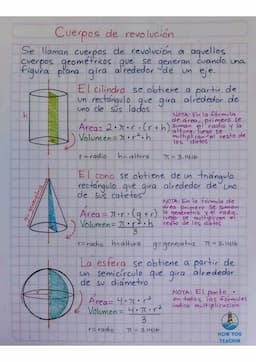 Cuerpos de revolución
Se llaman cuerpos de revolución a aquellos
cuerpos geométricos que se generan cuando una
figura plana gira alrededor de un eje.
El cilindro se obtiene a partir de
un rectángulo que gira alrededor de
uno de sus lados
h
r
Área= 2·π·r·(r+h)
Volumen= π·r²·h
NOTA: En la fórmula
de área, primero se
suman el radio y la
altura, luego se
multiplica al resto de
los datos
r=radio h=altura π=3.1416
El cono se obtiene de un triángulo
rectángulo que gira alrededor de uno
de sus catetos
Área= π·r·(g+r)
Volumen= π·r²·h
3
NOTA: En la fórmula de
área primero se suman
la generatriz y el radio,
luego se multiplican al
resto de los datos
r=radio h=altura g=generatriz π=3.1416
La esfera se obtiene a partir de
un semicírculo que gira alrededor
de su diámetro
Área= 4·π·r²
Volumen= 4·π·r³
3
NOTA: El punto ·
en todas las fórmulas
indica multiplicación
r=radio π=3.1416
HOW YOU
TEACHIN